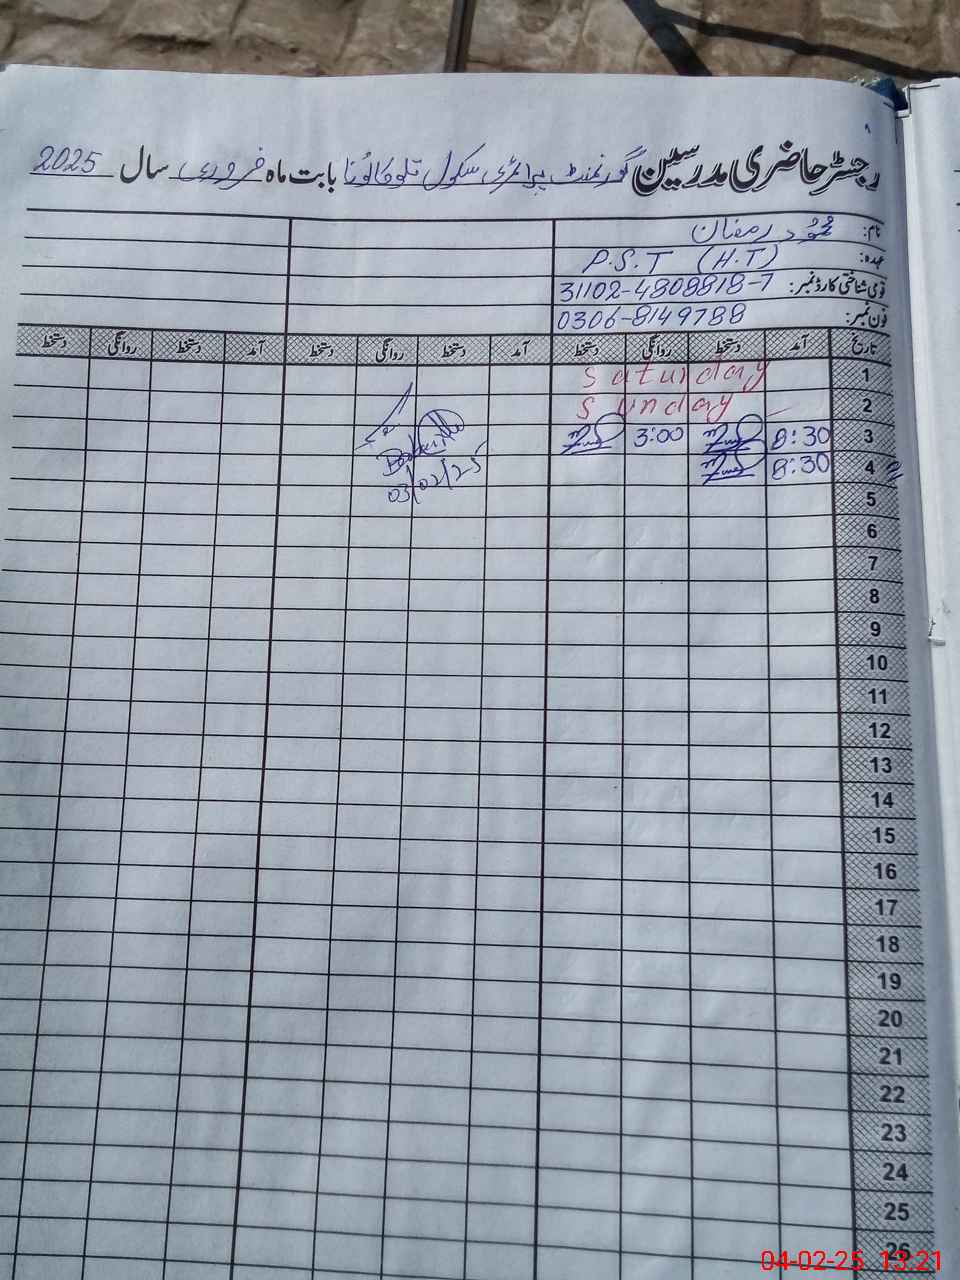 رجسٹر حاضری مدرسین گورنمنٹ پرائمری سکول بابت ماہ فروری سال 2025
نام: محمود رمضان
عہدہ: P.S.T (H.T)
قومی شناختی کارڈ نمبر: 31102-4808818-7
فون نمبر: 0306-8149788
تاریخ آمد دستخط روانگی دستخط آمد دستخط روانگی دستخط آمد دستخط روانگی دستخط
1 Saturday
2 Sunday
3 8:30 3:00
4 8:30
03/02/25
5
6
7
8
9
10
11
12
13
14
15
16
17
18
19
20
21
22
23
24
25
26
04-02-25 13:21